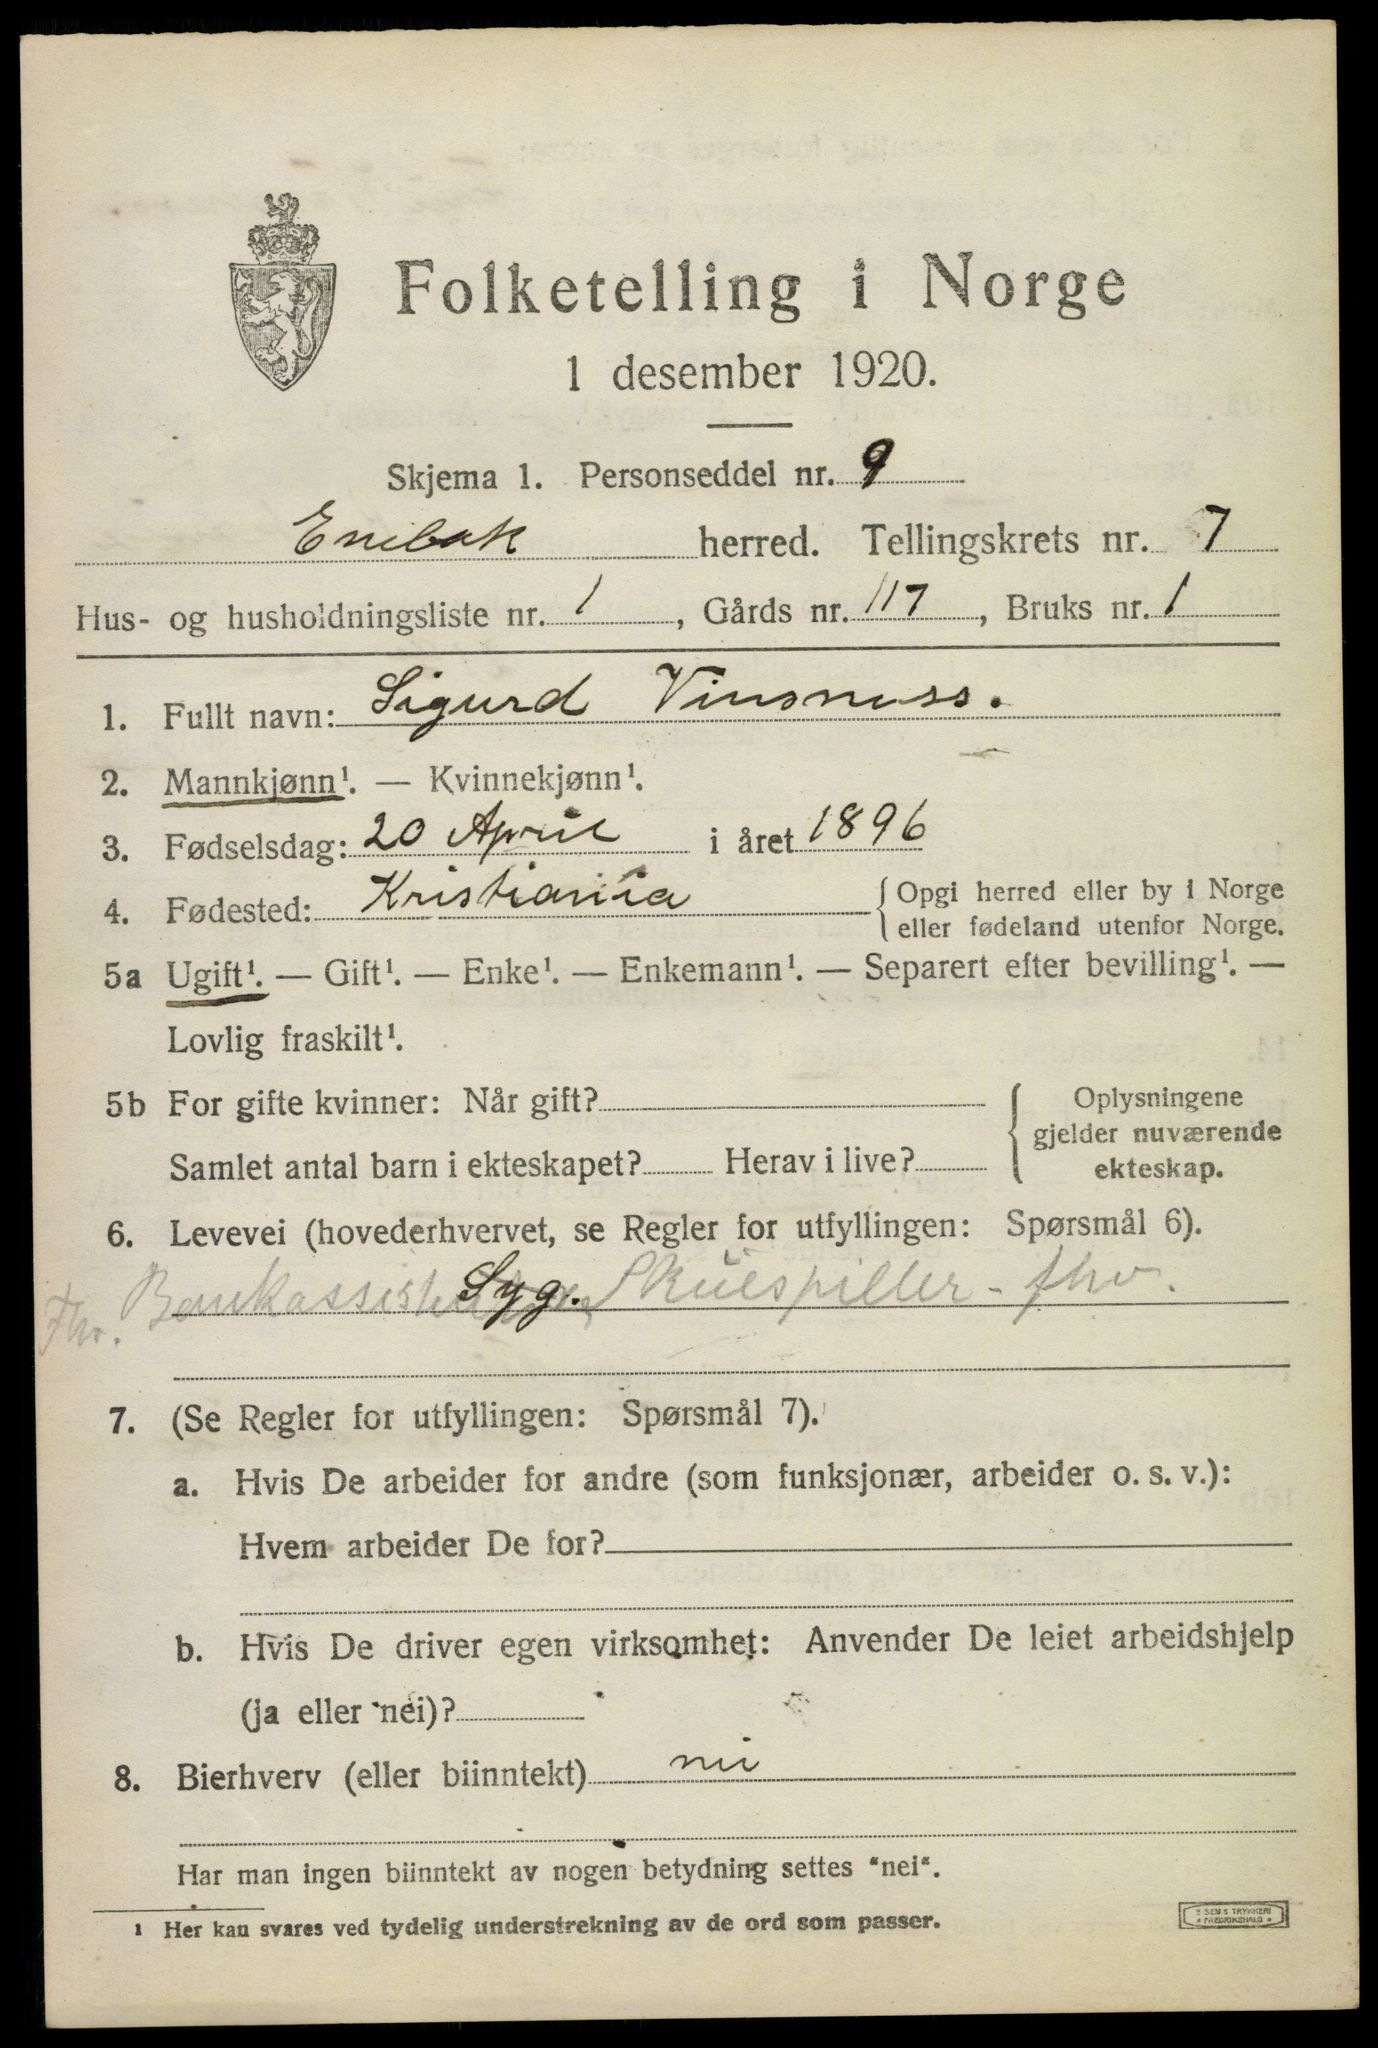 Folketelling i Norge
1 desember 1920.
Skjema 1. Personseddel nr. 9
Enebak herred. Tellingskrets nr. 7
Hus- og husholdningsliste nr. 1, Gårds nr. 117, Bruks nr. 1
1. Fullt navn: Sigurd Vinsness.
2. Mannkjønn¹. — Kvinnekjønn¹.
3. Fødselsdag: 20 April i året 1896
4. Fødested: Kristiania
Opgi herred eller by i Norge
eller fødeland utenfor Norge.
5a Ugift¹. — Gift¹. — Enke¹. — Enkemann¹. — Separert efter bevilling¹. —
Lovlig fraskilt¹.
5b For gifte kvinner: Når gift?
Samlet antal barn i ekteskapet? Herav i live?
Oplysningene
gjelder nuværende
ekteskap.
6. Levevei (hovederhvervet, se Regler for utfyllingen: Spørsmål 6).
Fhv. Syg. Skuespiller - fhv.
7. (Se Regler for utfyllingen: Spørsmål 7).
a. Hvis De arbeider for andre (som funksjonær, arbeider o. s. v.):
Hvem arbeider De for?
b. Hvis De driver egen virksomhet: Anvender De leiet arbeidshjelp
(ja eller nei)?
8. Bierhverv (eller biinntekt) nei
Har man ingen biinntekt av nogen betydning settes "nei".
1 Her kan svares ved tydelig understrekning av de ord som passer.
SEM'S TRYKKERI
FREDRIKSHALD